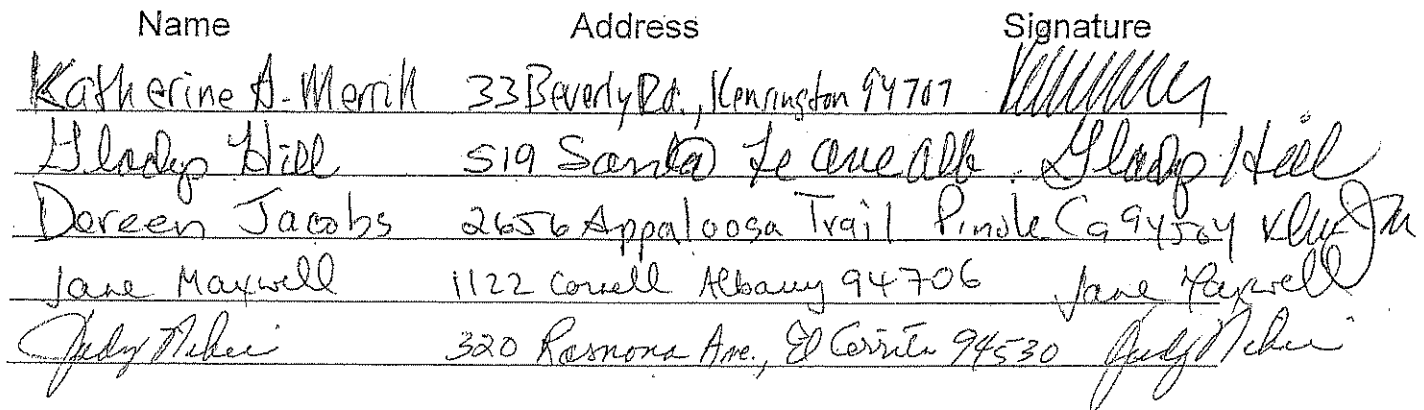 Name Address Signature
Katherine A. Merrill 33 Beverly Rd., Kensington 94707
Gladys Hill 519 Santa Fe ave alb. Gladys Hill
Doreen Jacobs 2656 Appaloosa Trail Pinole Ca 94564
Jane Maxwell 1122 Cornell Albany 94706 Jane Maxwell
Judy 320 Ave., El Cerrito 94530 Judy